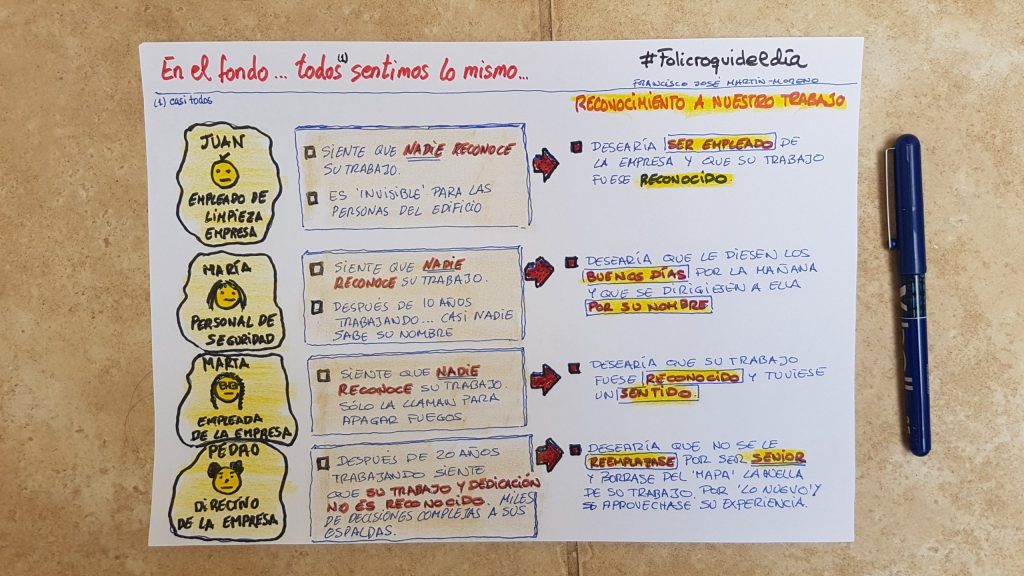 En el fondo... todos(1) sentimos lo mismo...
#Folicroquideldía
FRANCISCO JOSÉ MARTÍN-MORENO
(1) casi todos
RECONOCIMIENTO A NUESTRO TRABAJO
JUAN
EMPLEADO DE
LIMPIEZA
EMPRESA
SIENTE QUE NADIE RECONOCE
SU TRABAJO.
ES 'INVISIBLE' PARA LAS
PERSONAS DEL EDIFICIO
DESEARÍA SER EMPLEADO DE
LA EMPRESA Y QUE SU TRABAJO
FUESE RECONOCIDO.
MARÍA
PERSONAL DE
SEGURIDAD
SIENTE QUE NADIE
RECONOCE SU TRABAJO.
DESPUÉS DE 10 AÑOS
TRABAJANDO... CASI NADIE
SABE SU NOMBRE
DESEARÍA QUE LE DIESEN LOS
BUENOS DÍAS POR LA MAÑANA
Y QUE SE DIRIGIESEN A ELLA
POR SU NOMBRE
MARTA
EMPLEADA
DE LA EMPRESA
SIENTE QUE NADIE
RECONOCE SU TRABAJO.
SÓLO LA LLAMAN PARA
APAGAR FUEGOS.
DESEARÍA QUE SU TRABAJO
FUESE RECONOCIDO Y TUVIESE
UN SENTIDO.
PEDRO
DIRECTIVO
DE LA EMPRESA
DESPUÉS DE 20 AÑOS
TRABAJANDO SIENTE
QUE SU TRABAJO Y DEDICACIÓN
NO ES RECONOCIDO. MILES
DE DECISIONES COMPLEJAS A SUS
ESPALDAS.
DESEARÍA QUE NO SE LE
REEMPLAZASE POR SER SENIOR
Y BORRASE DEL 'MAPA' LA HUELLA
DE SU TRABAJO. POR 'LO NUEVO' Y
SE APROVECHASE SU EXPERIENCIA.